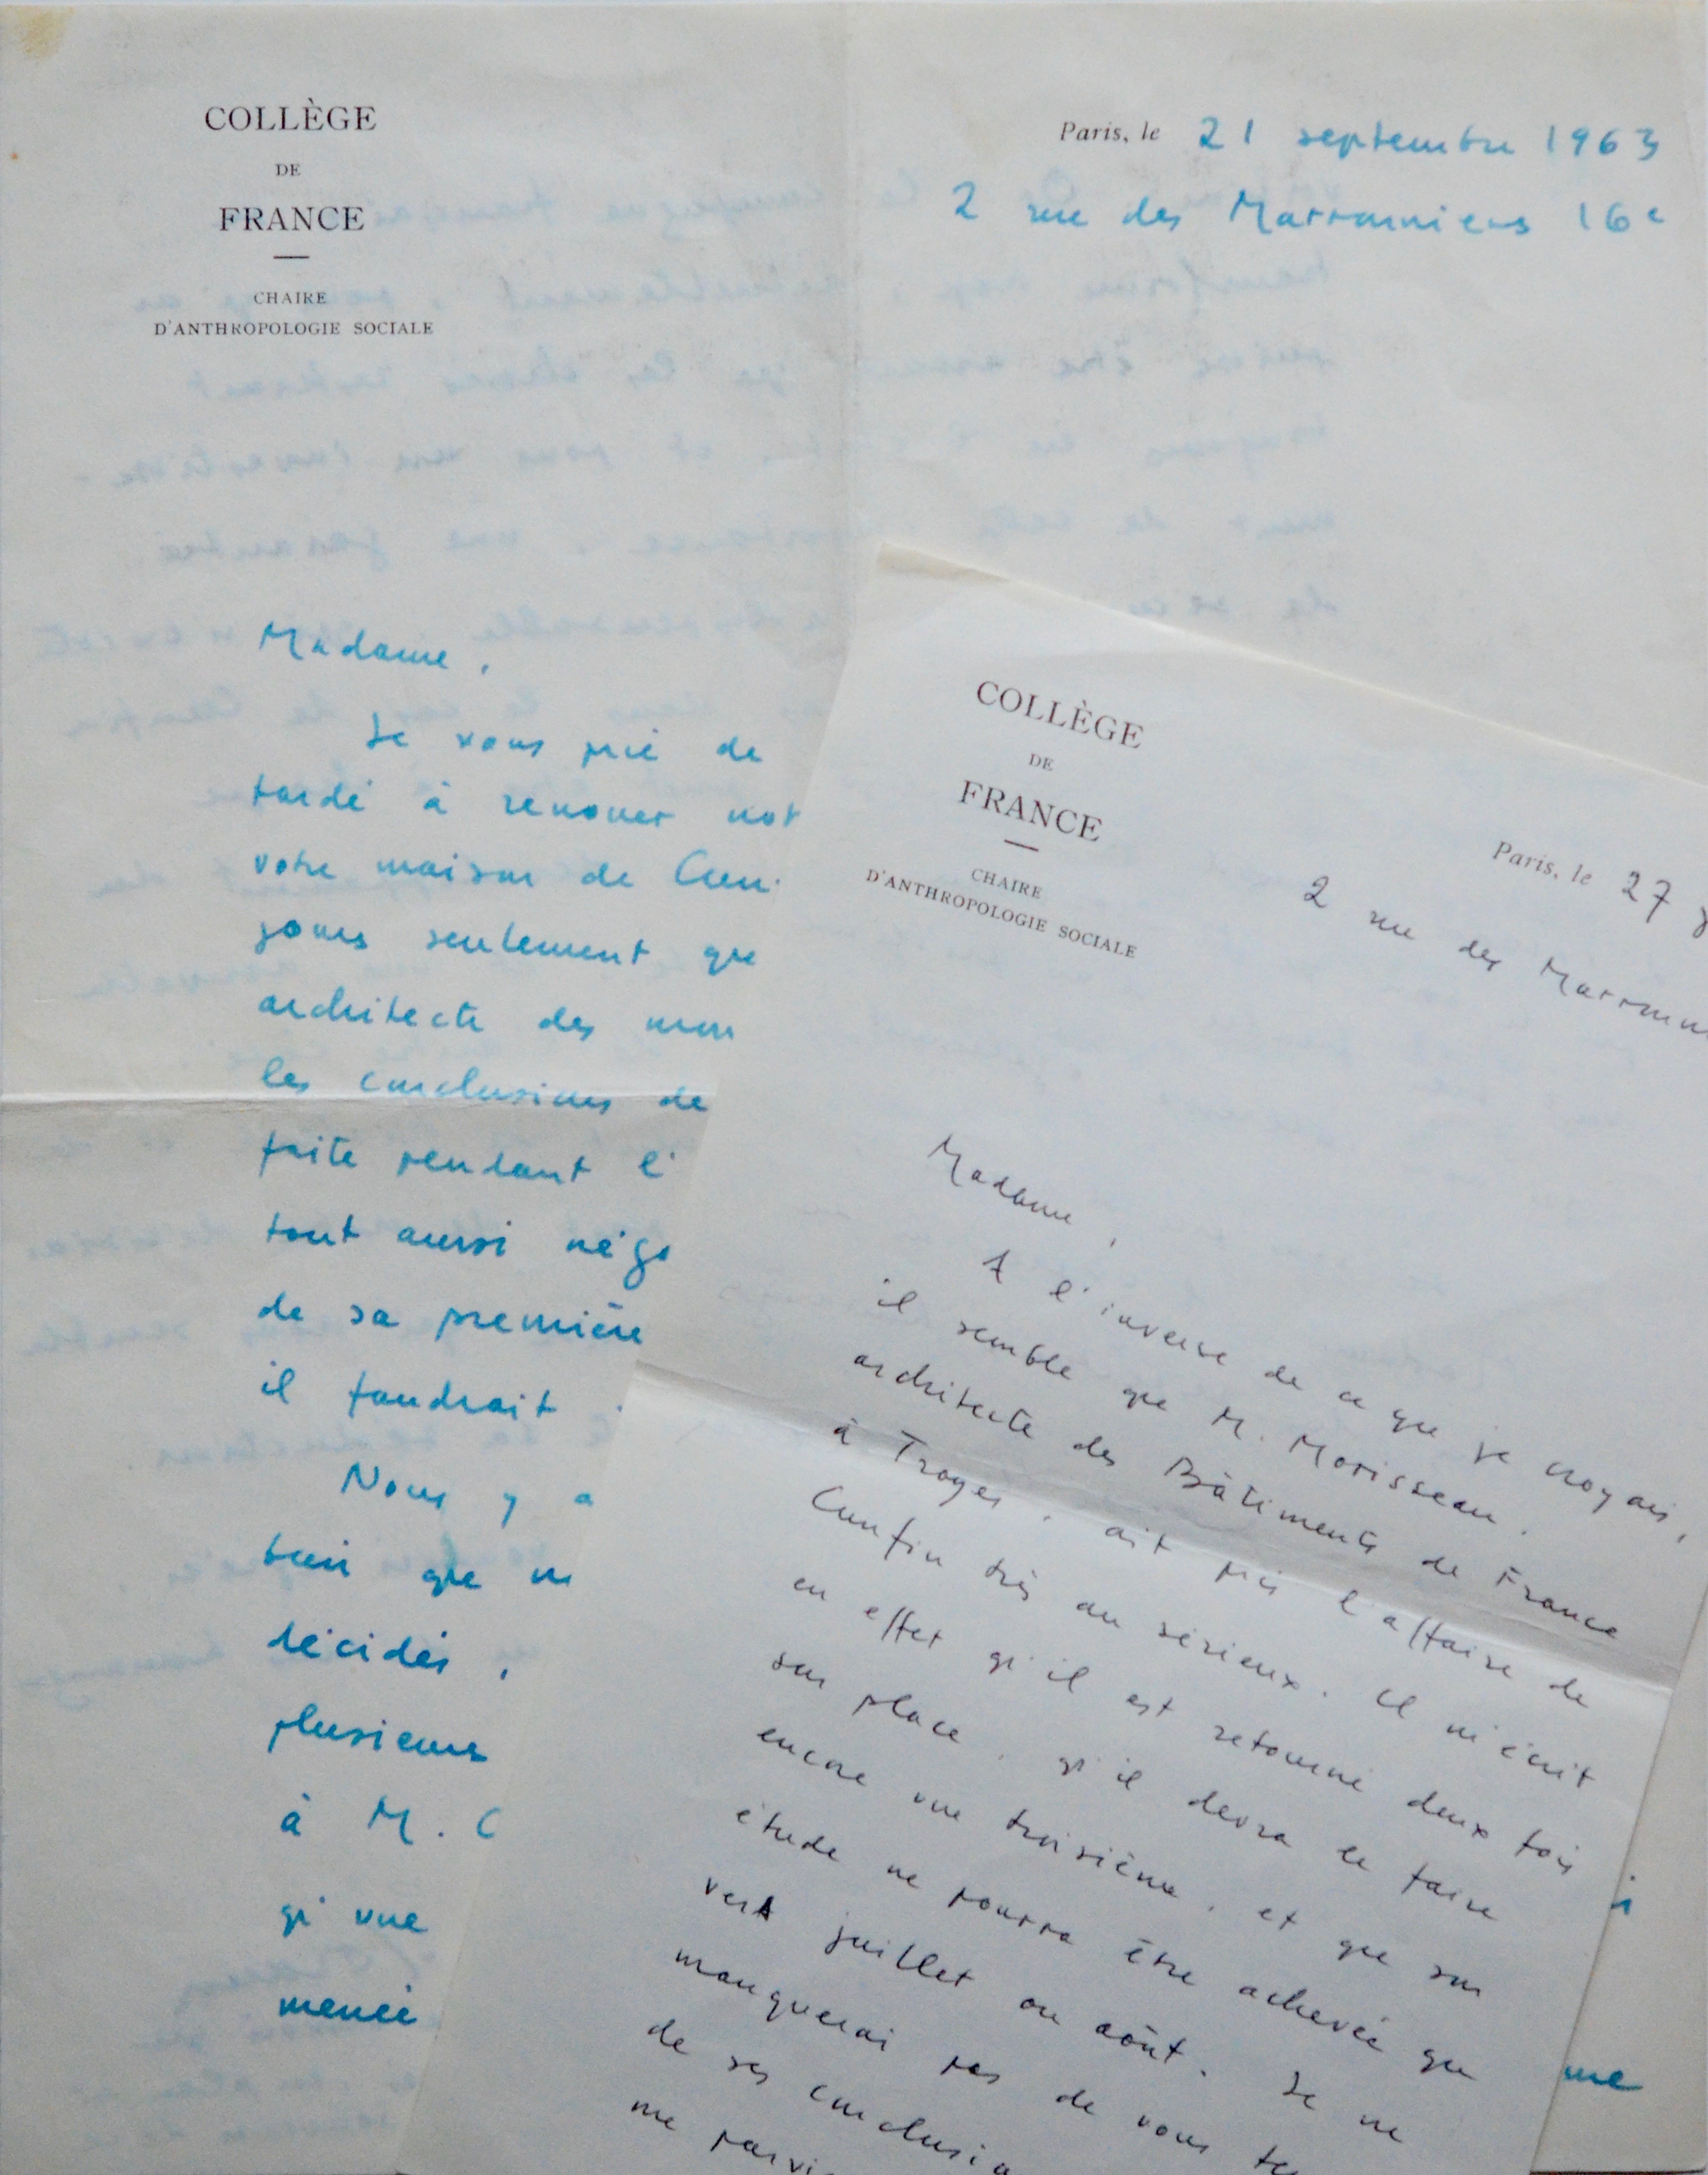 COLLÈGE
DE
FRANCE
CHAIRE
D'ANTHROPOLOGIE SOCIALE
Paris, le 21 septembre 1963
2 rue des Marronniers 16e
Madame,
Je vous prie de
tardé à renouer not
votre maison de Cun
jours seulement que
architecte des mon
les conclusions de
faite pendant l'
tout aussi nég
de sa première
il faudrait
Nous y a
bien que n
décidés,
plusieurs
à M. C
qu'une
menée
me
COLLÈGE
DE
FRANCE
CHAIRE
D'ANTHROPOLOGIE SOCIALE
Paris, le 27
2 rue des Marronn
Madame,
A l'inverse de ce que je croyais,
il semble que M. Morisseau,
architecte des Bâtiments de France
à Troyes, ait pris l'affaire de
Cunfin très au sérieux. Il m'écrit
en effet qu'il est retourné deux fois
sur place, qu'il devra le faire
encore une troisième, et que son
étude ne pourra être achevée que
vers juillet ou août. Je ne
manquerai pas de vous te
de ses conclusio
me parvi